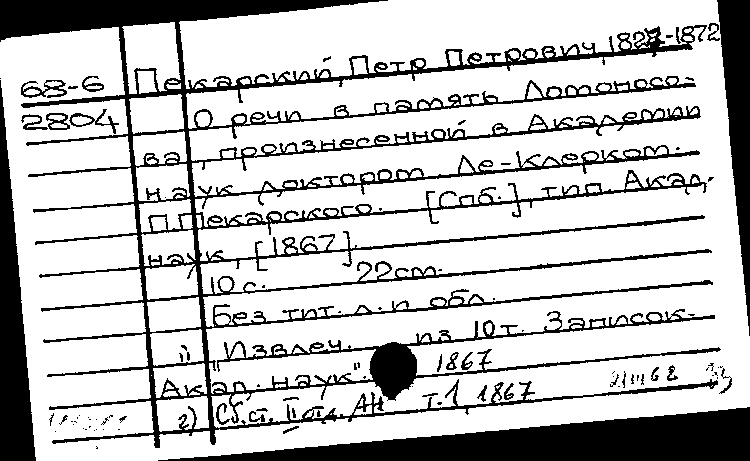 68-6 Пекарский, Петр Петрович, 1827-1872
2804 О речи в память Ломоносо-
ва, произнесенной в Академии
наук доктором Ле-Клерком.
П.Пекарского. [Спб.], тип. Акад.
наук, [1867].
10 с. 22cm.
Без тит. л. и обл.
"Извлеч. из 10 т. Записок
Акад. наук". 1867
2) Сб. ст. II отд. АН т. 1, 1867